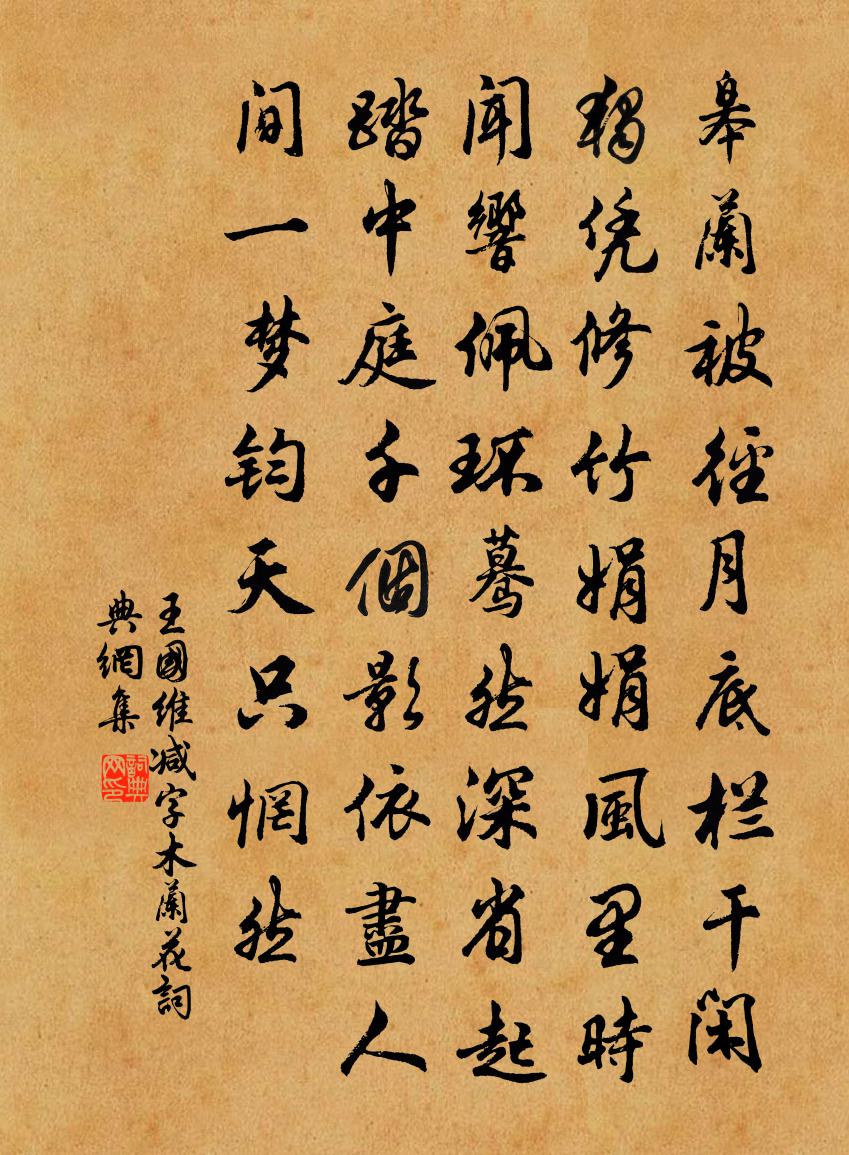 皋蘭被徑月底栏干闲
獨凭修竹娟娟風里時
闻響佩环蓦然深省起
踏中庭千個影依盡人
间一梦钧天只惘然
王國維减字木蘭花詞
典網集
詞典網印